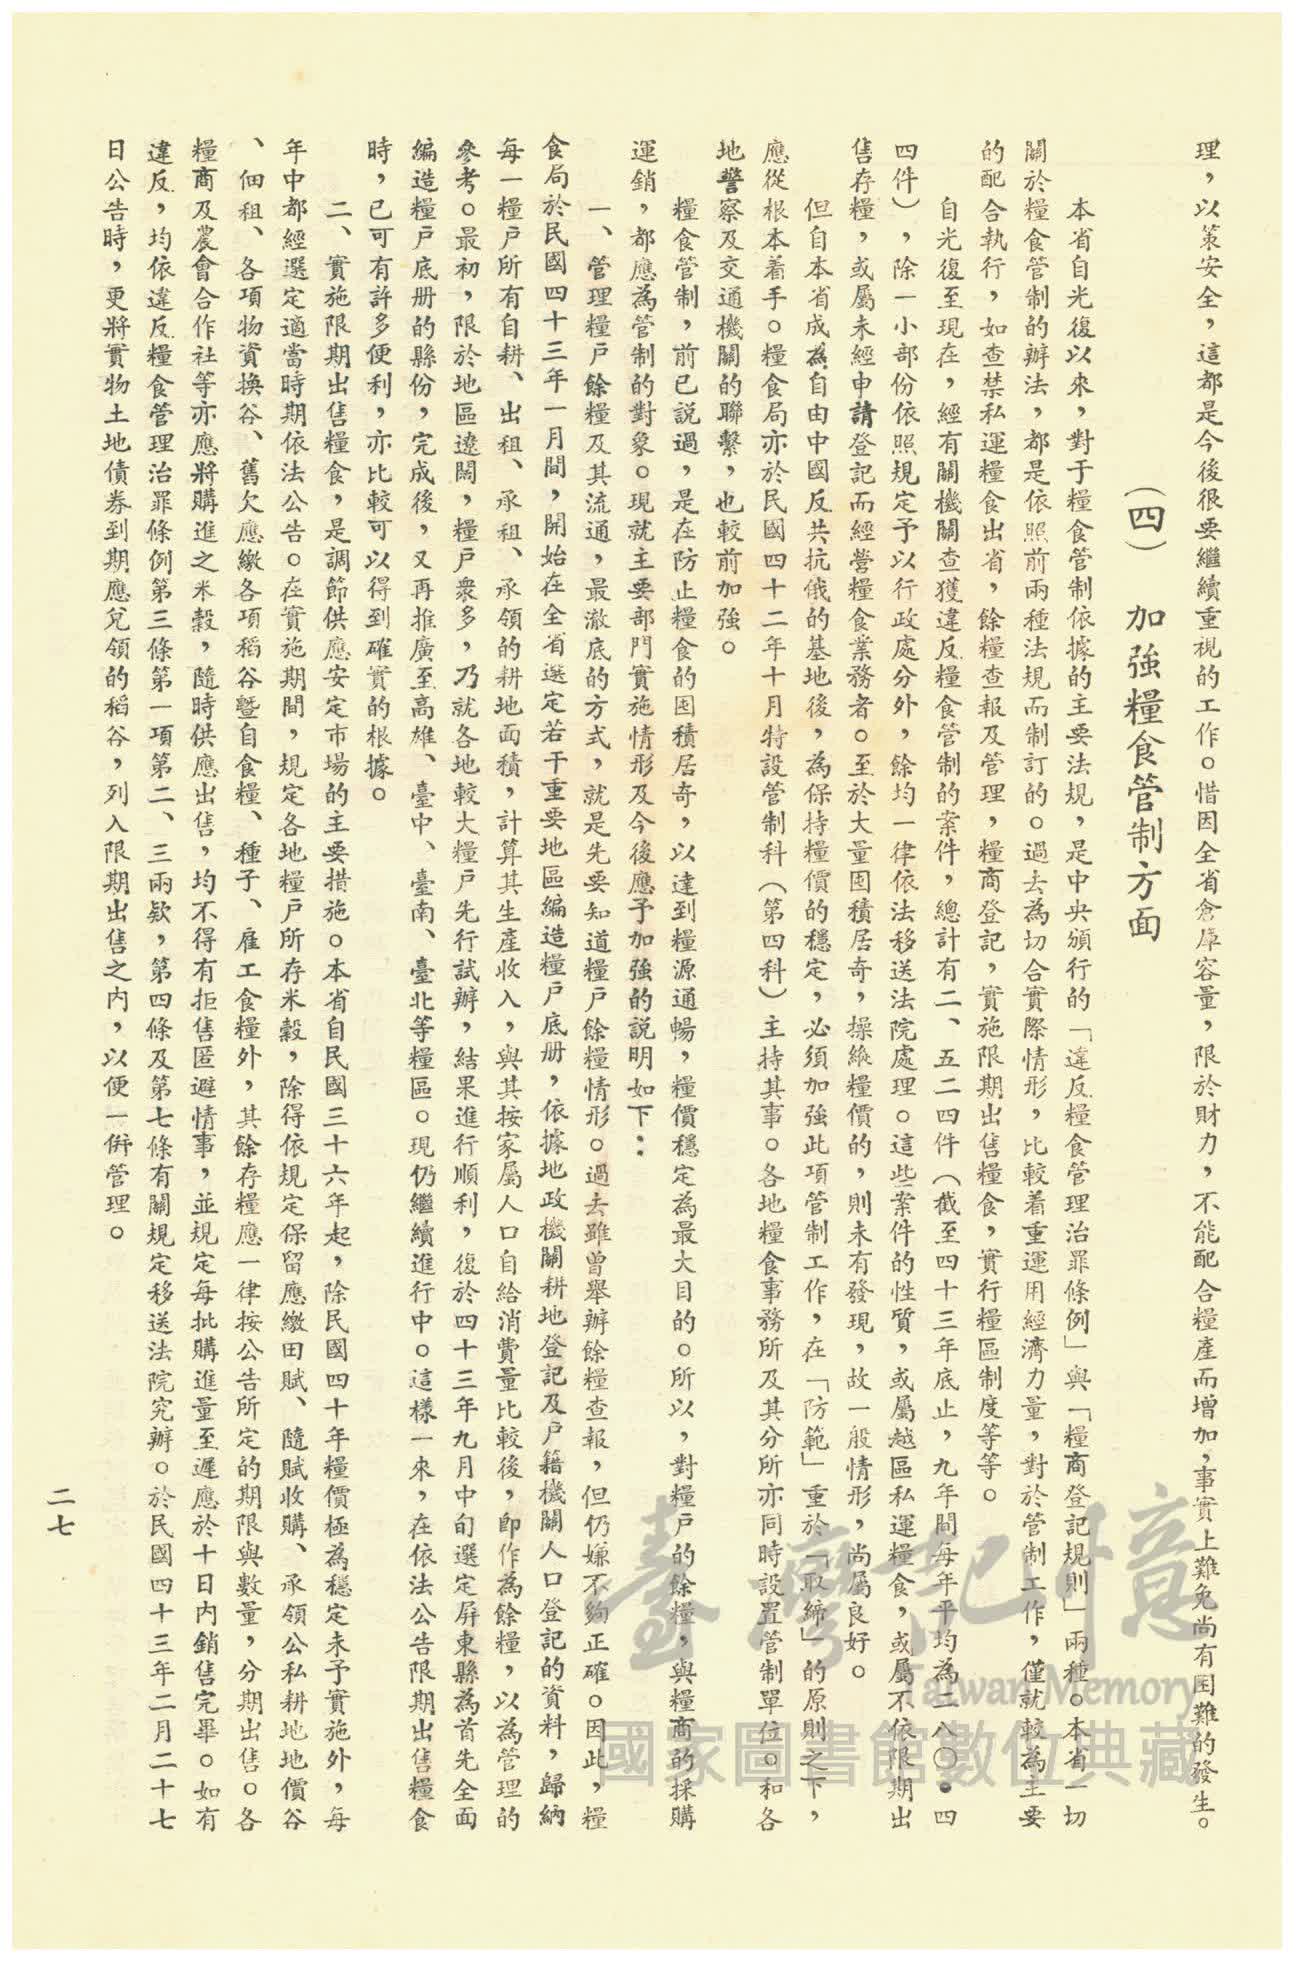 理，以策安全，這都是今後很要繼續重視的工作。惜因全省倉庫容量，限於財力，不能配合糧產而增加，事實上難免尚有困難的發生。
（四）　加強糧食管制方面
本省自光復以來，對于糧食管制依據的主要法規，是中央頒行的「違反糧食管理治罪條例」與「糧商登記規則」兩種。本省一切
關於糧食管制的辦法，都是依照前兩種法規而制訂的。過去為切合實際情形，比較着重運用經濟力量，對於管制工作，僅就較為主要
的配合執行，如查禁私運糧食出省，餘糧查報及管理，糧商登記，實施限期出售糧食，實行糧區制度等等。
自光復至現在，經有關機關查獲違反糧食管制的案件，總計有二、五二四件（截至四十三年底止，九年間每年平均為二八〇・四
四件），除一小部份依照規定予以行政處分外，餘均一律依法移送法院處理。這些案件的性質，或屬越區私運糧食，或屬不依限期出
售存糧，或屬未經申請登記而經營糧食業務者。至於大量囤積居奇，操縱糧價的，則未有發現，故一般情形，尚屬良好。
但自本省成為自由中國反共抗俄的基地後，為保持糧價的穩定，必須加強此項管制工作，在「防範」重於「取締」的原則之下，
應從根本着手。糧食局亦於民國四十二年十月特設管制科（第四科）主持其事。各地糧食事務所及其分所亦同時設置管制單位。和各
地警察及交通機關的聯繫，也較前加強。
糧食管制，前已說過，是在防止糧食的囤積居奇，以達到糧源通暢，糧價穩定為最大目的。所以，對糧戶的餘糧，與糧商的採購
運銷，都應為管制的對象。現就主要部門實施情形及今後應予加強的說明如下：
一、管理糧戶餘糧及其流通，最澈底的方式，就是先要知道糧戶餘糧情形。過去雖曾舉辦餘糧查報，但仍嫌不夠正確。因此，糧
食局於民國四十三年一月間，開始在全省選定若干重要地區編造糧戶底册，依據地政機關耕地登記及戶籍機關人口登記的資料，歸納
每一糧戶所有自耕、出租、承租、承領的耕地面積，計算其生產收入，與其按家屬人口自給消費量比較後，即作為餘糧，以為管理的
參考。最初，限於地區遼闊，糧戶衆多，乃就各地較大糧戶先行試辦，結果進行順利，復於四十三年九月中旬選定屏東縣為首先全面
編造糧戶底册的縣份，完成後，又再推廣至高雄、臺中、臺南、臺北等糧區。現仍繼續進行中。這樣一來，在依法公告限期出售糧食
時，已可有許多便利，亦比較可以得到確實的根據。
二、實施限期出售糧食，是調節供應安定市場的主要措施。本省自民國三十六年起，除民國四十年糧價極為穩定未予實施外，每
年中都經選定適當時期依法公告。在實施期間，規定各地糧戶所存米穀，除得依規定保留應繳田賦、隨賦收購、承領公私耕地地價谷
、佃租、各項物資換谷、舊欠應繳各項稻谷暨自食糧、種子、雇工食糧外，其餘存糧應一律按公告所定的期限與數量，分期出售。各
糧商及農會合作社等亦應將購進之米穀，隨時供應出售，均不得有拒售匿避情事，並規定每批購進量至遲應於十日內銷售完畢。如有
違反，均依違反糧食管理治罪條例第三條第一項第二、三兩欵，第四條及第七條有關規定移送法院究辦。於民國四十三年二月二十七
日公告時，更將實物土地債券到期應兌領的稻谷，列入限期出售之內，以便一併管理。
二七
臺灣記憶
Taiwan Memory
國家圖書館數位典藏